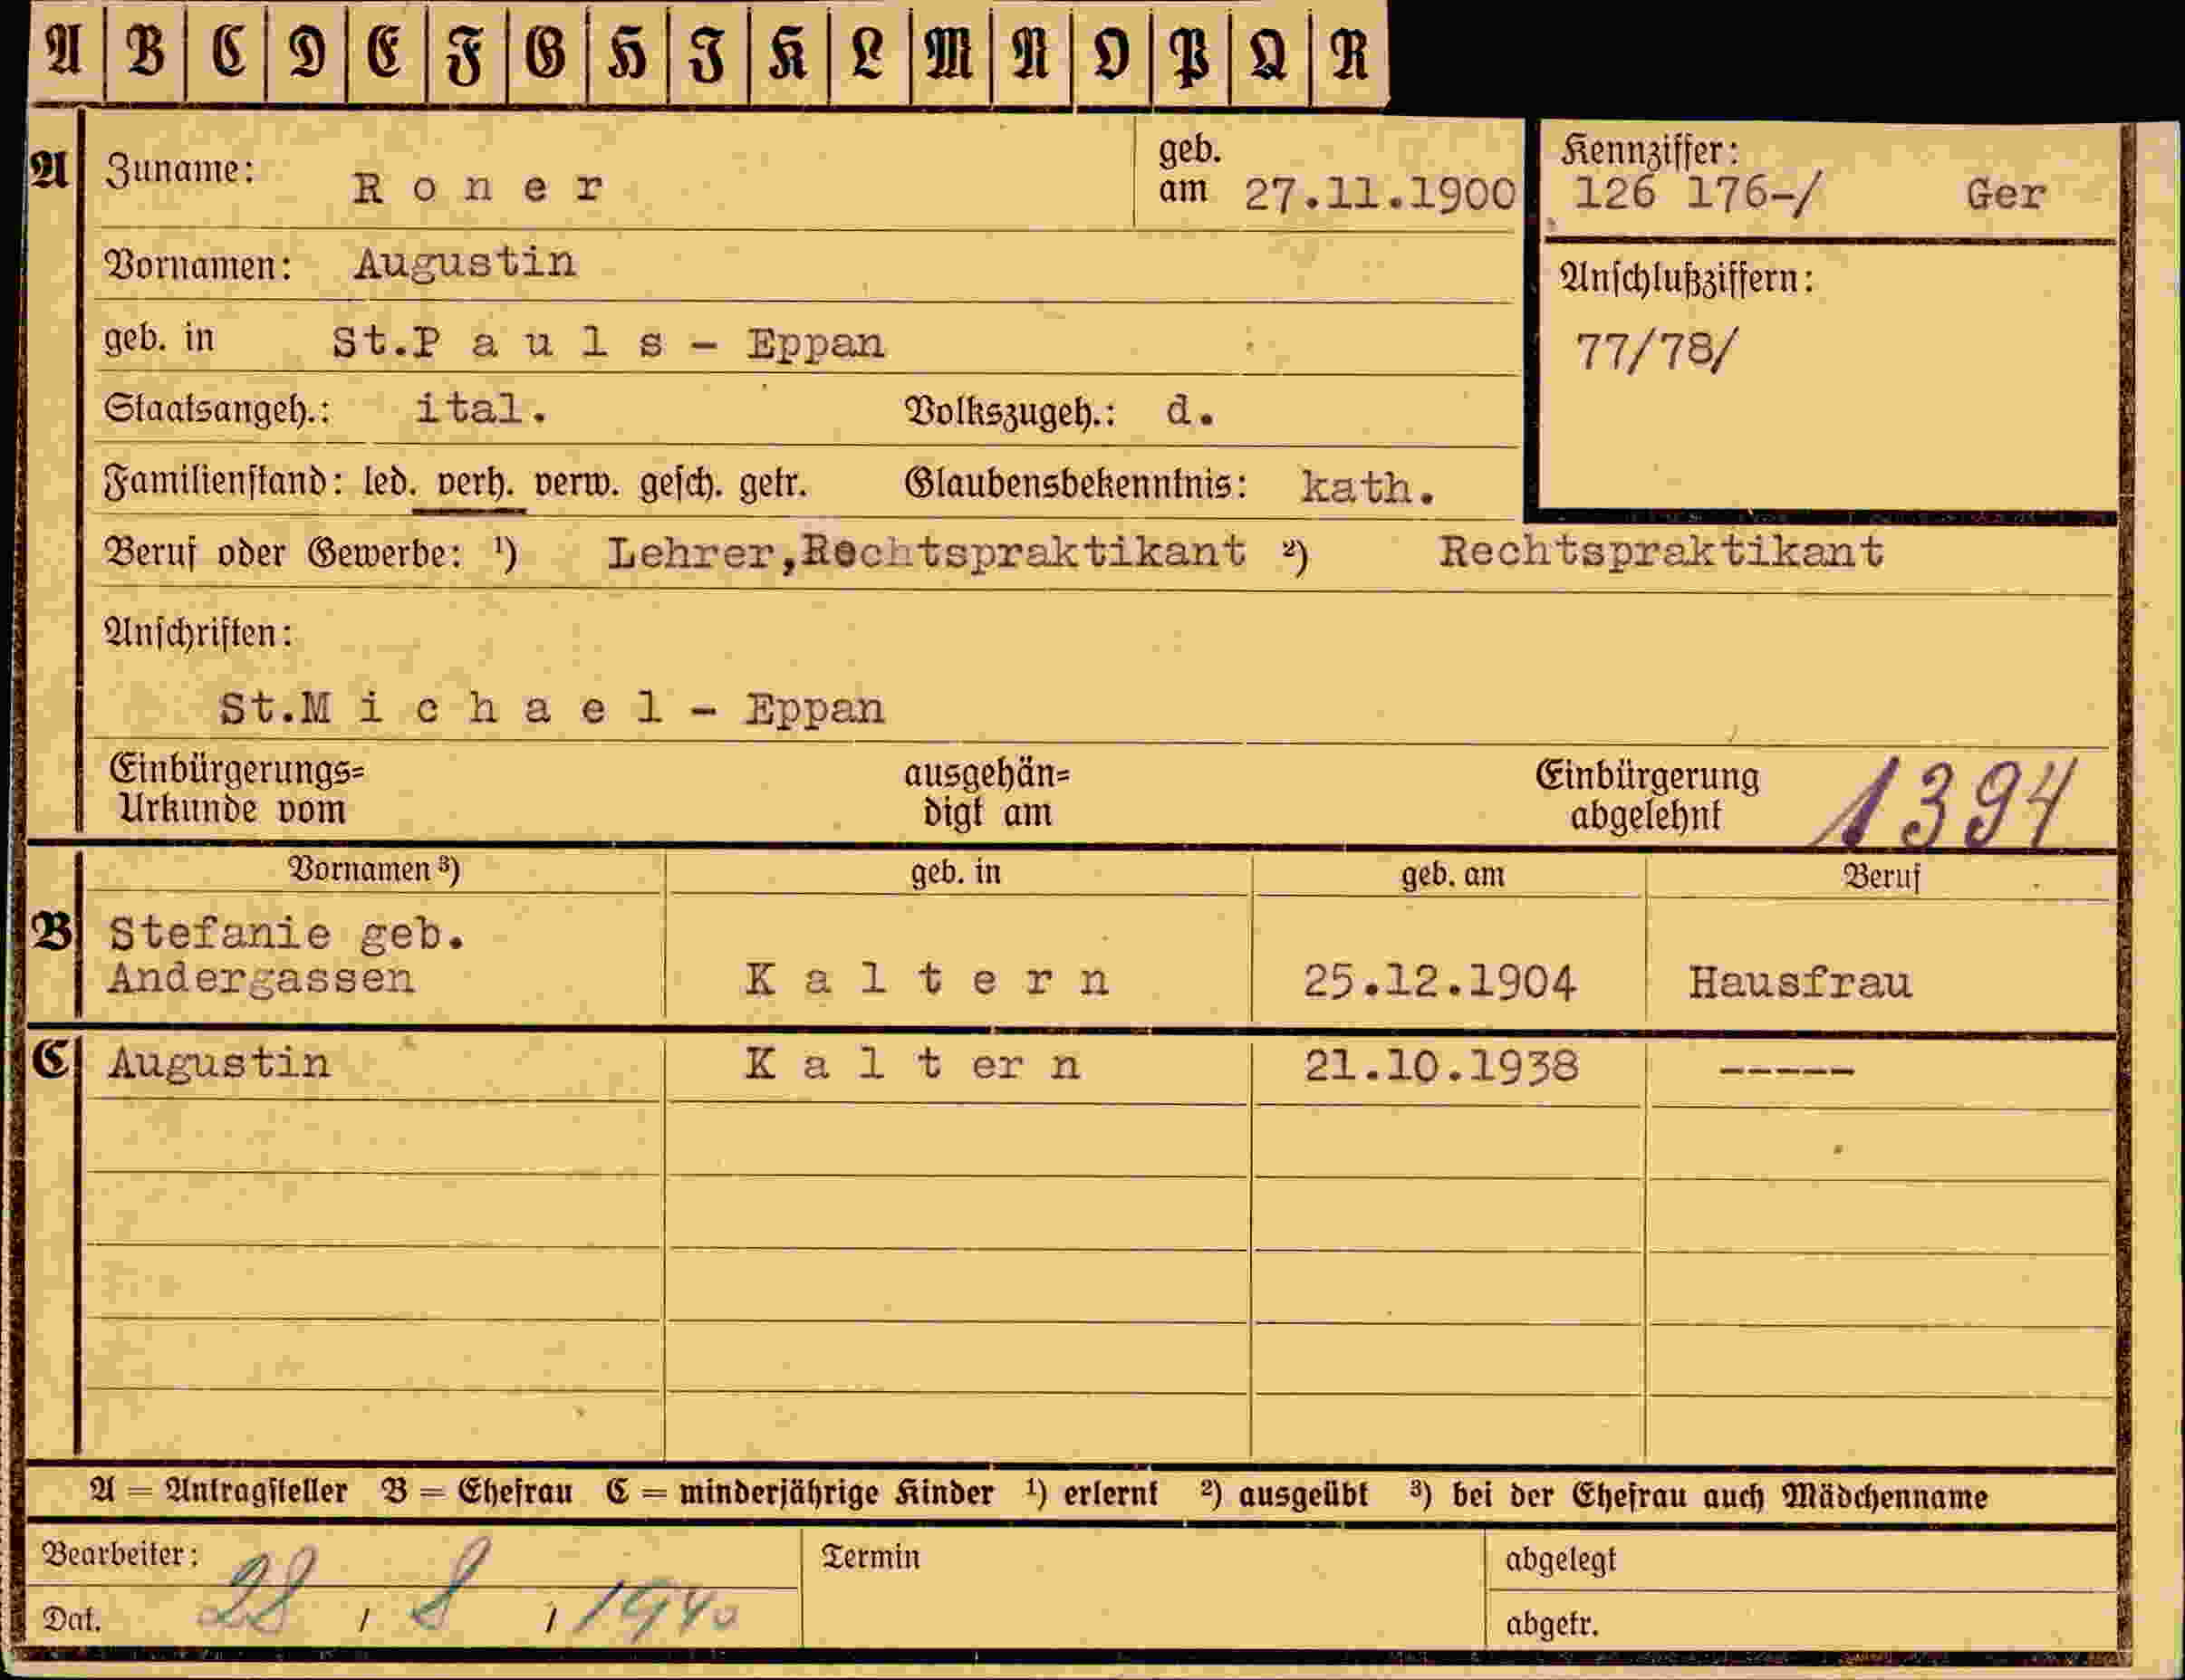 A B C D E F G H I K L M N O P Q R
A Zuname: Roner geb. am 27.11.1900
Kennziffer: 126 176-/ Ger
Vornamen: Augustin
Anschlußziffern:
geb. in St.Pauls - Eppan
77/78/
Staatsangeh.: ital. Volkszugeh.: d.
Familienstand: led. verh. verw. gesch. getr. Glaubensbekenntnis: kath.
Beruf oder Gewerbe: ¹) Lehrer,Rechtspraktikant ²) Rechtspraktikant
Anschriften:
St.Michael - Eppan
Einbürgerungs= ausgehän= Einbürgerung 1394
Urkunde vom digt am abgelehnt
Vornamen ³) geb. in geb. am Beruf
B Stefanie geb.
Andergassen Kaltern 25.12.1904 Hausfrau
C Augustin Kaltern 21.10.1938 -----
A = Antragsteller B = Ehefrau C = minderjährige Kinder ¹) erlernt ²) ausgeübt ³) bei der Ehefrau auch Mädchenname
Bearbeiter: Termin abgelegt
Dat. 28 / 8 / 1940 abgetr.